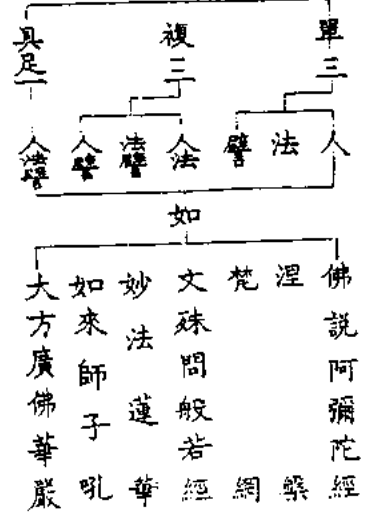 單三
複三
具足一
人
法
譬
人法
法譬
人譬
人法譬
如
佛說阿彌陀經
涅槃
梵網
文殊問般若經
妙法蓮華
如來師子吼
大方廣佛華嚴